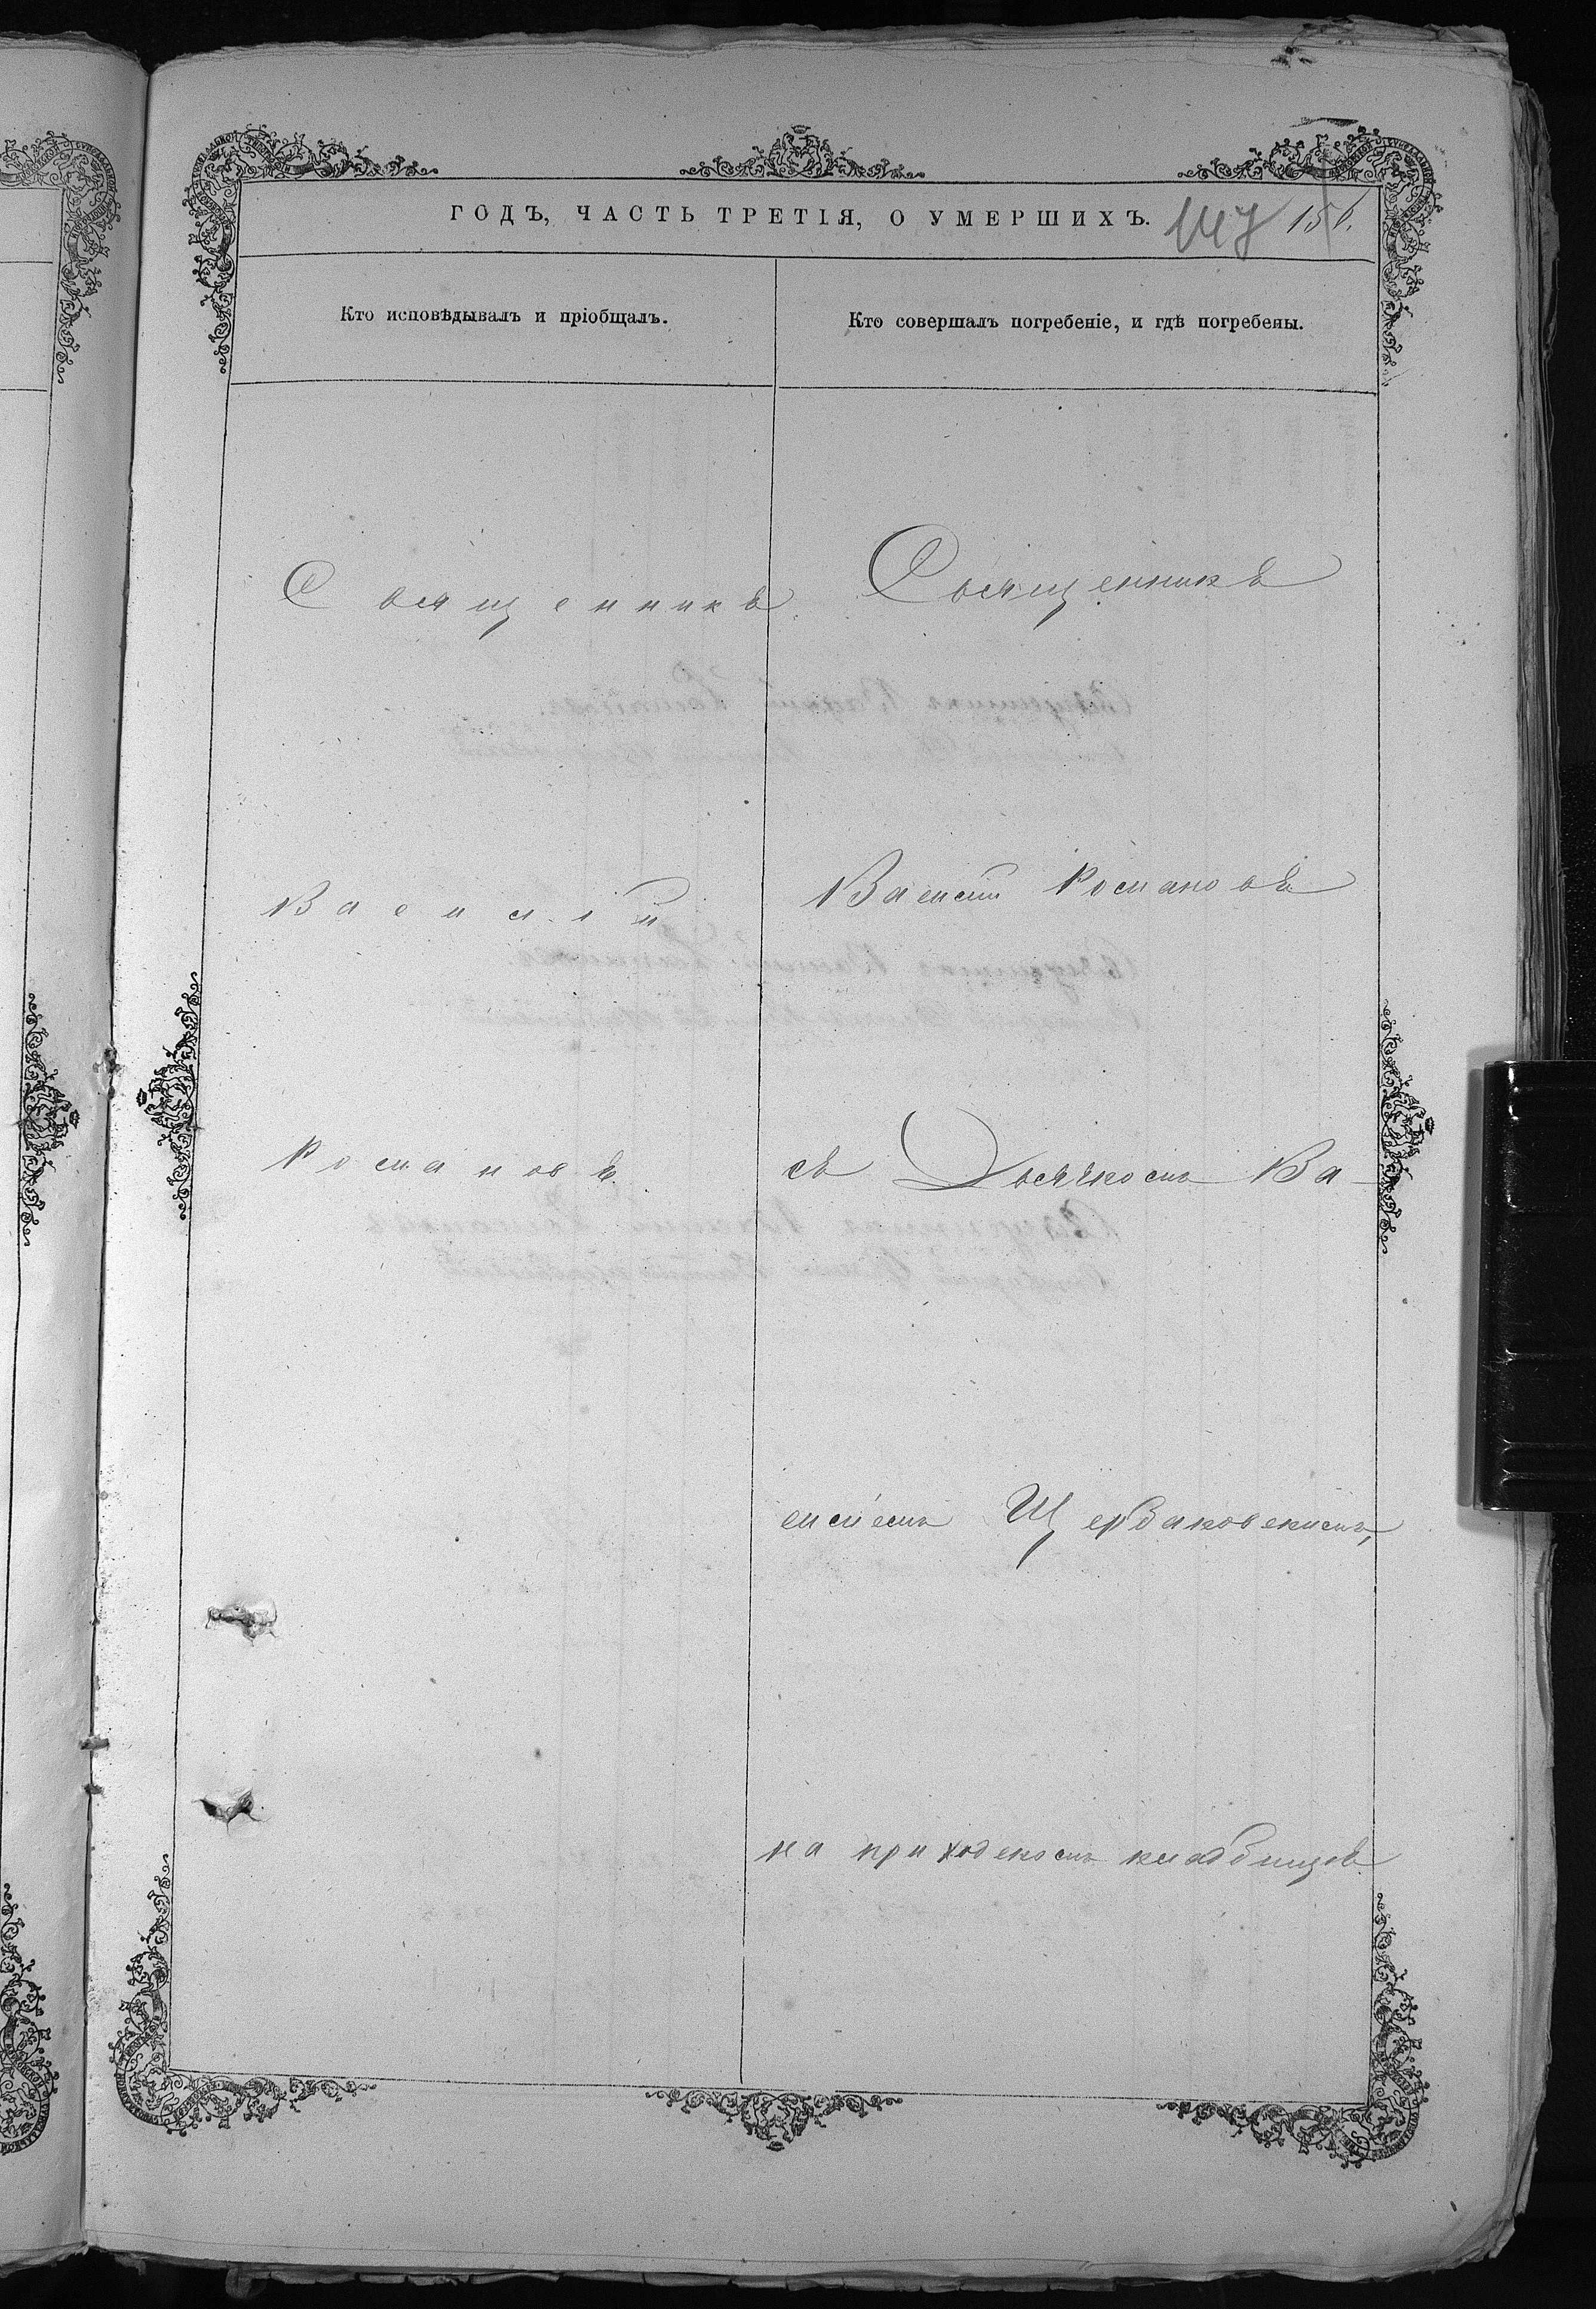 ГОДЪ, ЧАСТЬ ТРЕТІЯ, О УМЕРШИХЪ. 147 156.
Кто исповѣдывалъ и пріобщалъ.
Кто совершалъ погребеніе, и гдѣ погребены.
Священникъ
Василій
Романовъ.
Священникъ
Василій Романовъ
съ Дьячкомъ Ва-
силіемъ Щербаковскимъ,
на приходскомъ кладбищѣ